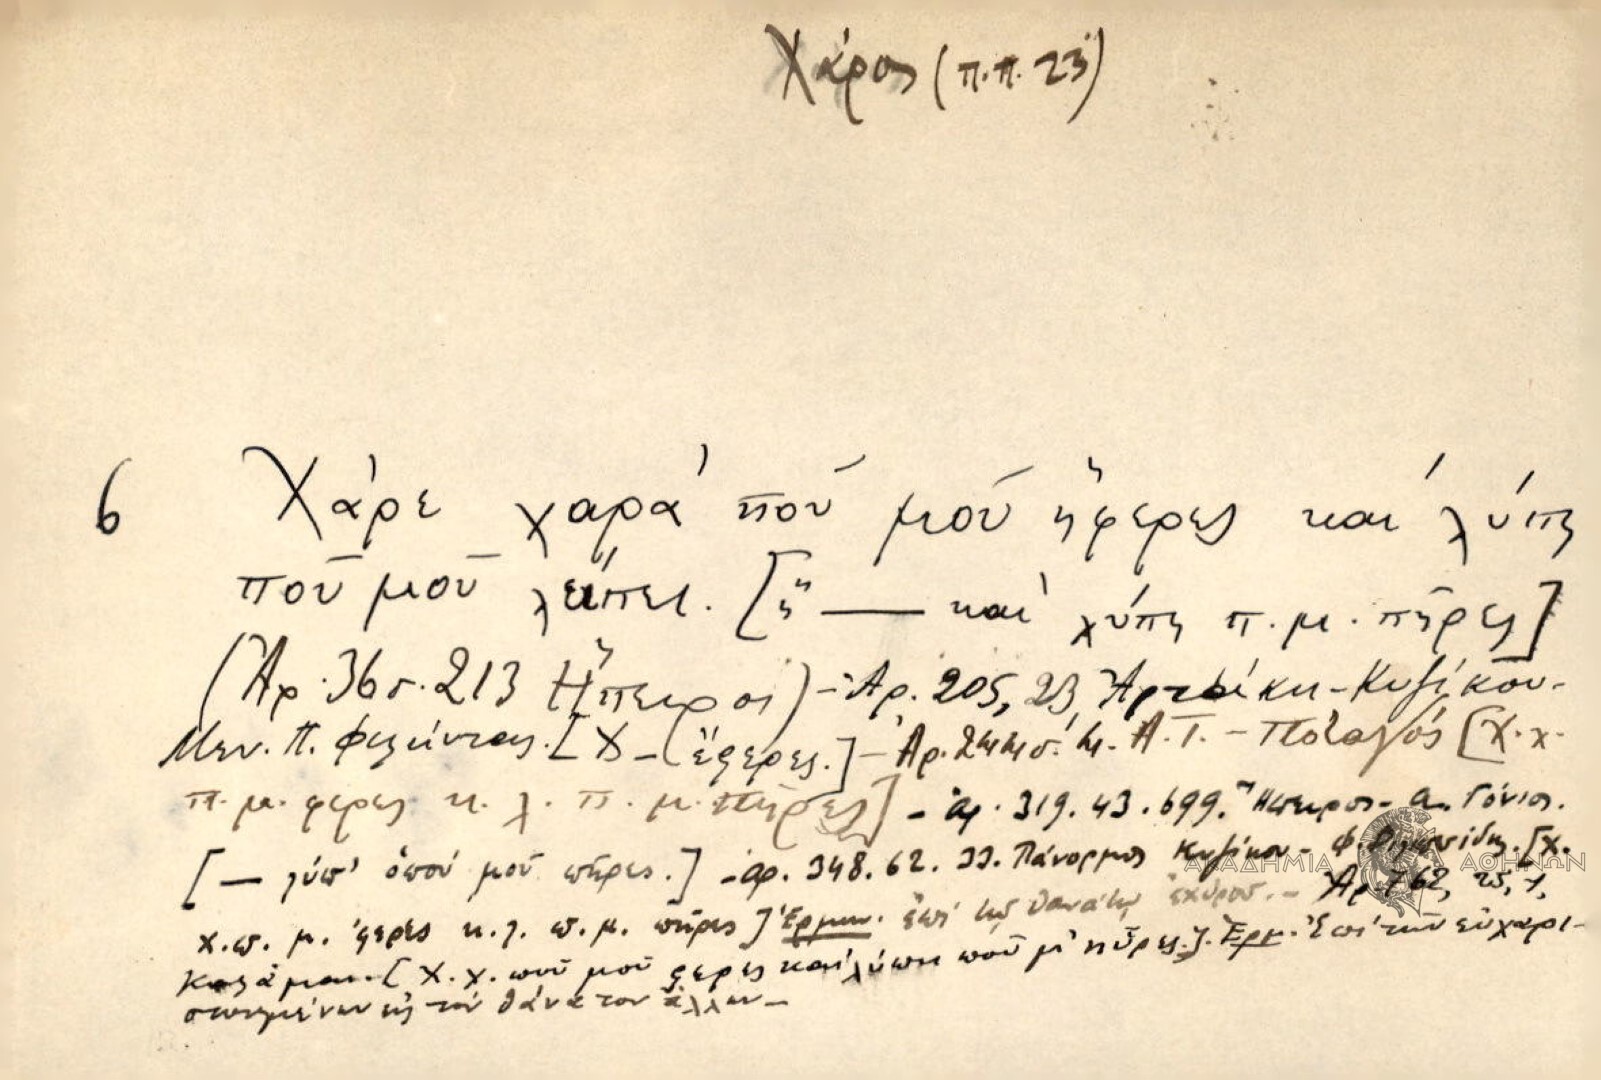 Χάρος (π.π. 23)
6 Χάρε χαρά ποῦ μοῦ ἤφερες καί λύπη
ποῦ μοῦ λείπει. [ἤ — καί λύπη π. μ. πῆρες]
(Ἀρ. 36 σ. 213 Ἤπειρος) – Ἀρ. 205, 23 Ἀρτάκη – Κυζίκου –
Μεν. Π. [Χ – ἔφερες.] – Ἀρ. Α.Τ. – [Χ. χ.
π. μ. φερες κ. λ. π. μ. πῆρες] – ἀρ. 319. 43. 699. Ἤπειρος – Γόνιος.
[— λύπ' ὁπού μοῦ πῆρες.] – ἀρ. 348. 62. 33. Πάνορμος Κυζίκου – Φ. [Χ.
χ. π. μ. ἤφερες κ. λ. π. μ. πῆρες] Ἑρμην. ἐπί τῷ θανάτῳ ἐχθροῦ. – Ἀρ. 762, 25, 1,
[Χ. χ. ποῦ μοῦ φερες καί λύπη ποῦ μ' πῆρες.]. Ἑρμ. Ἐπί τῶν εὐχαρι-
στημένων εἰς τόν θάνατον ἄλλων –
ΑΚΑΔΗΜΙΑ ΑΘΗΝΩΝ